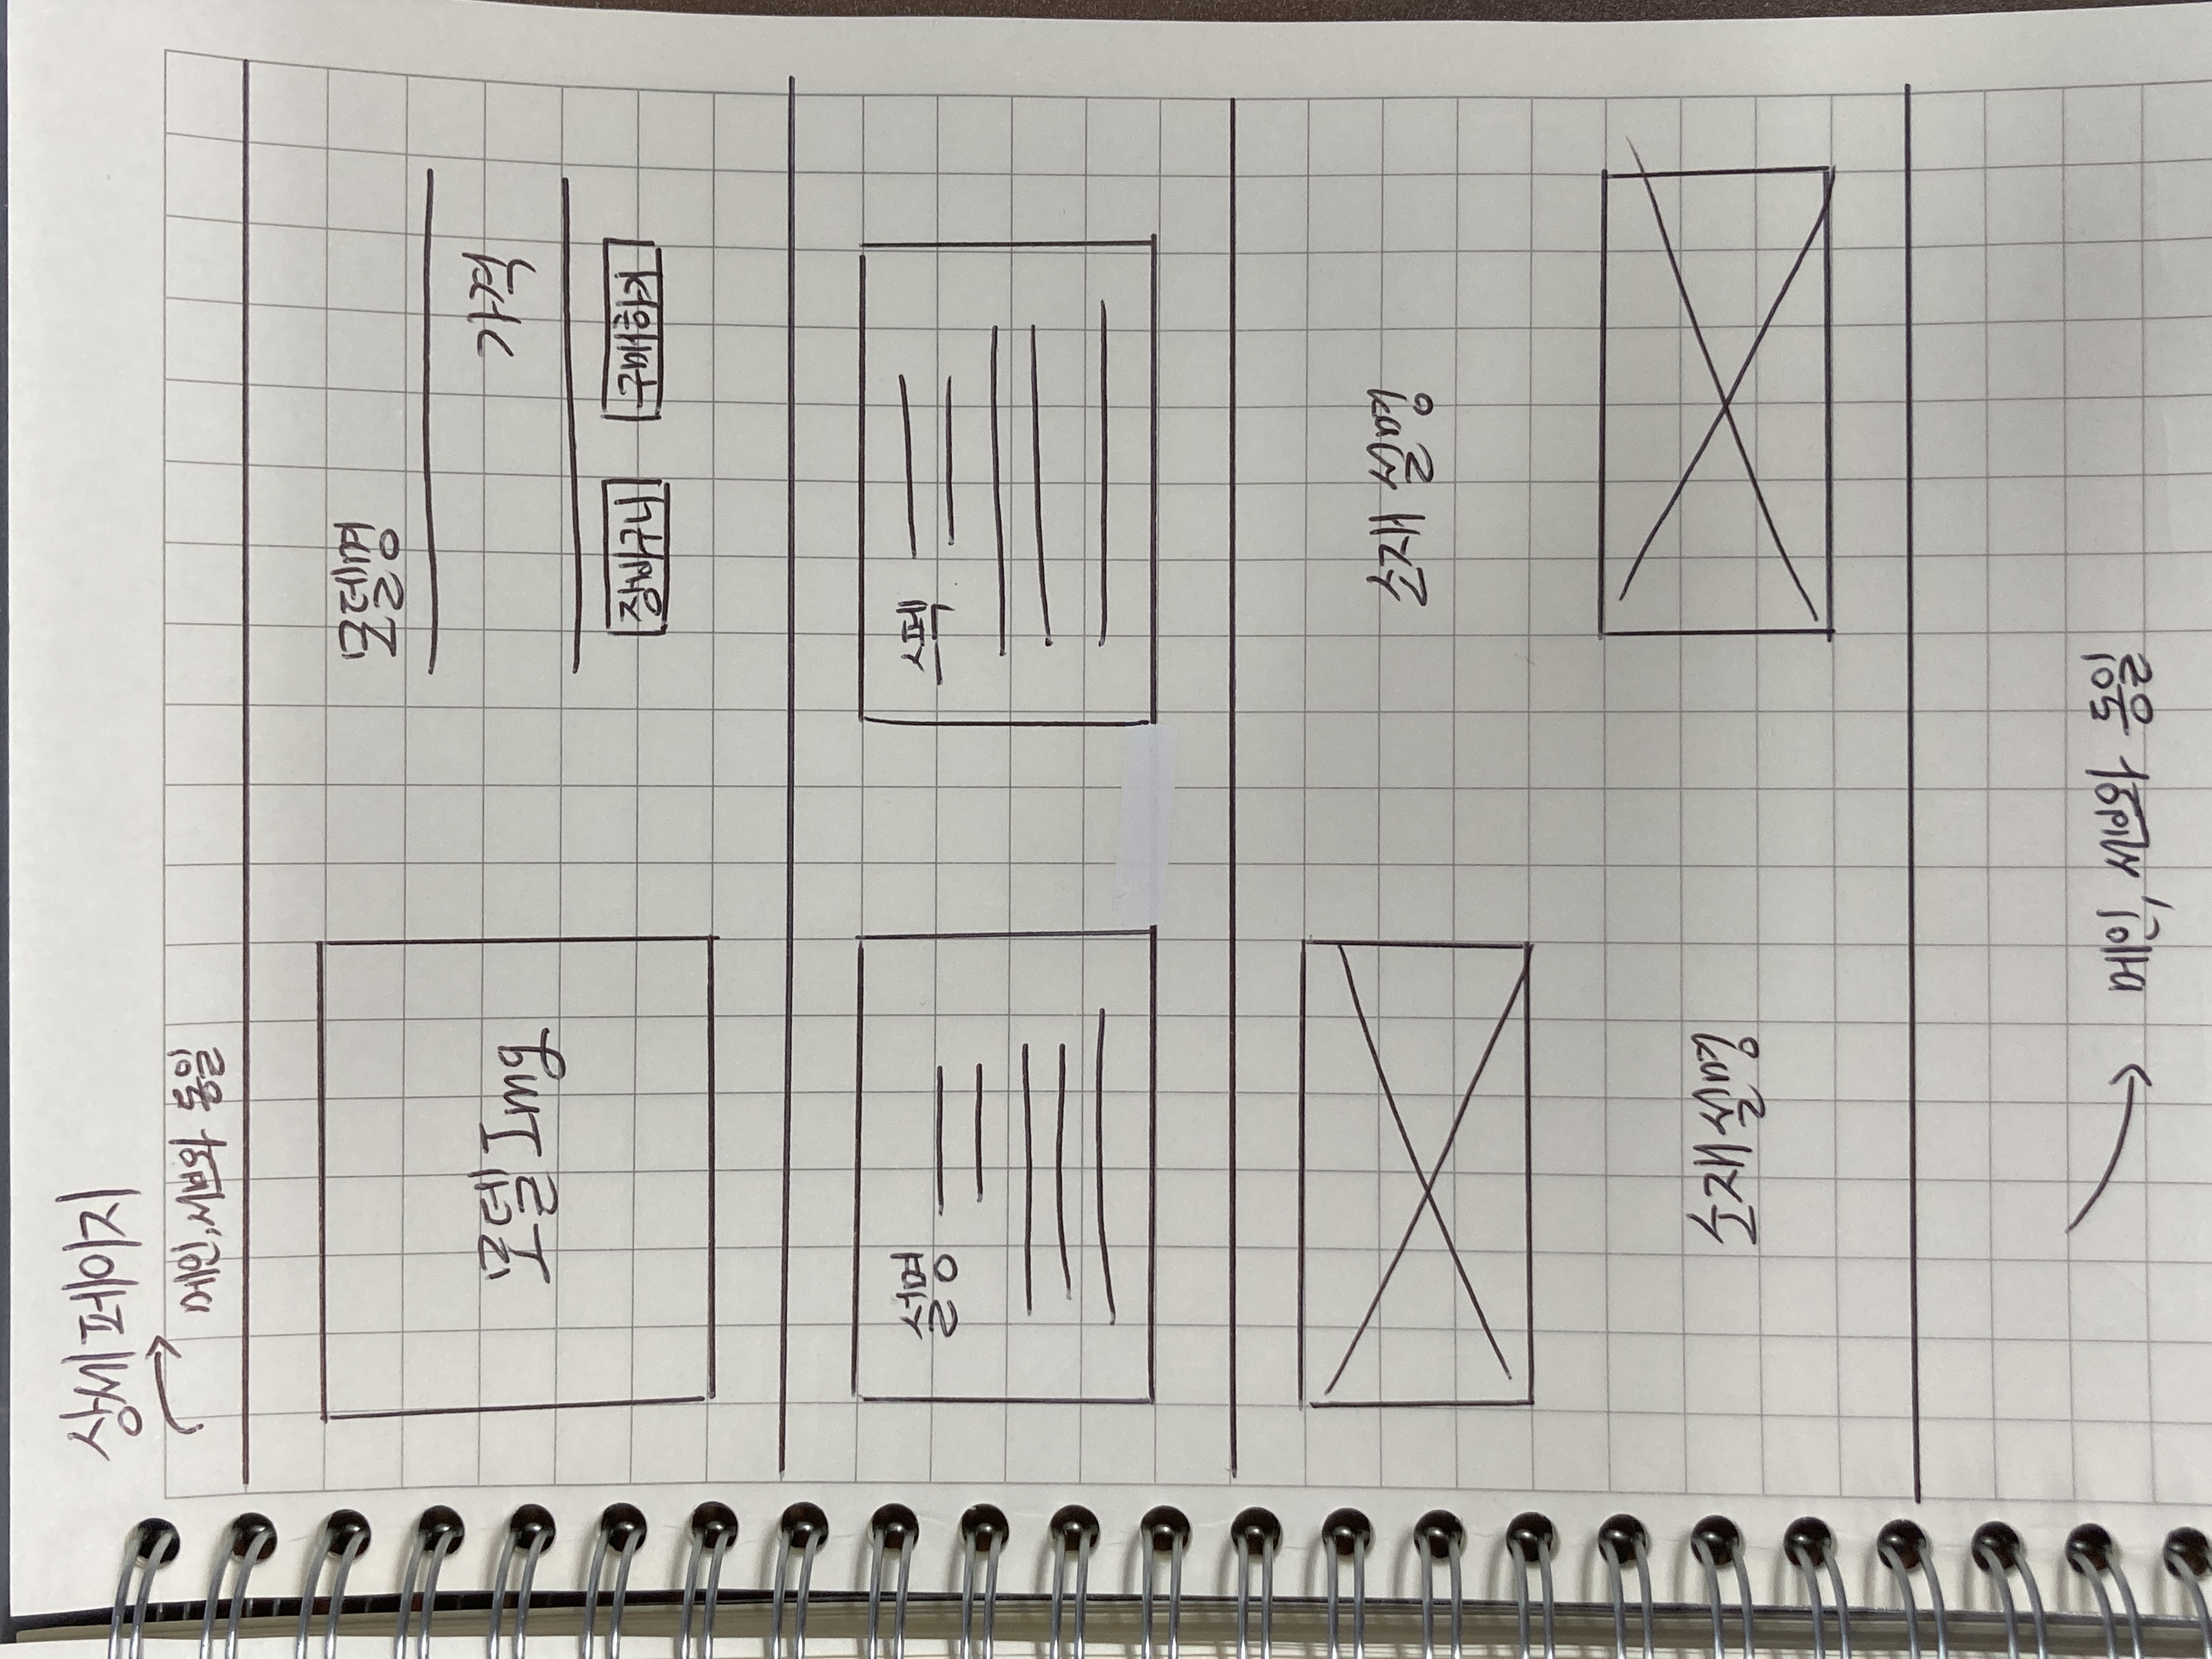 상세페이지
메인, 서브와 동일
모델명
모델 Img
가격
장바구니
구매하기
설명
스펙
소재 설명
소재 설명
메인, 서브와 동일